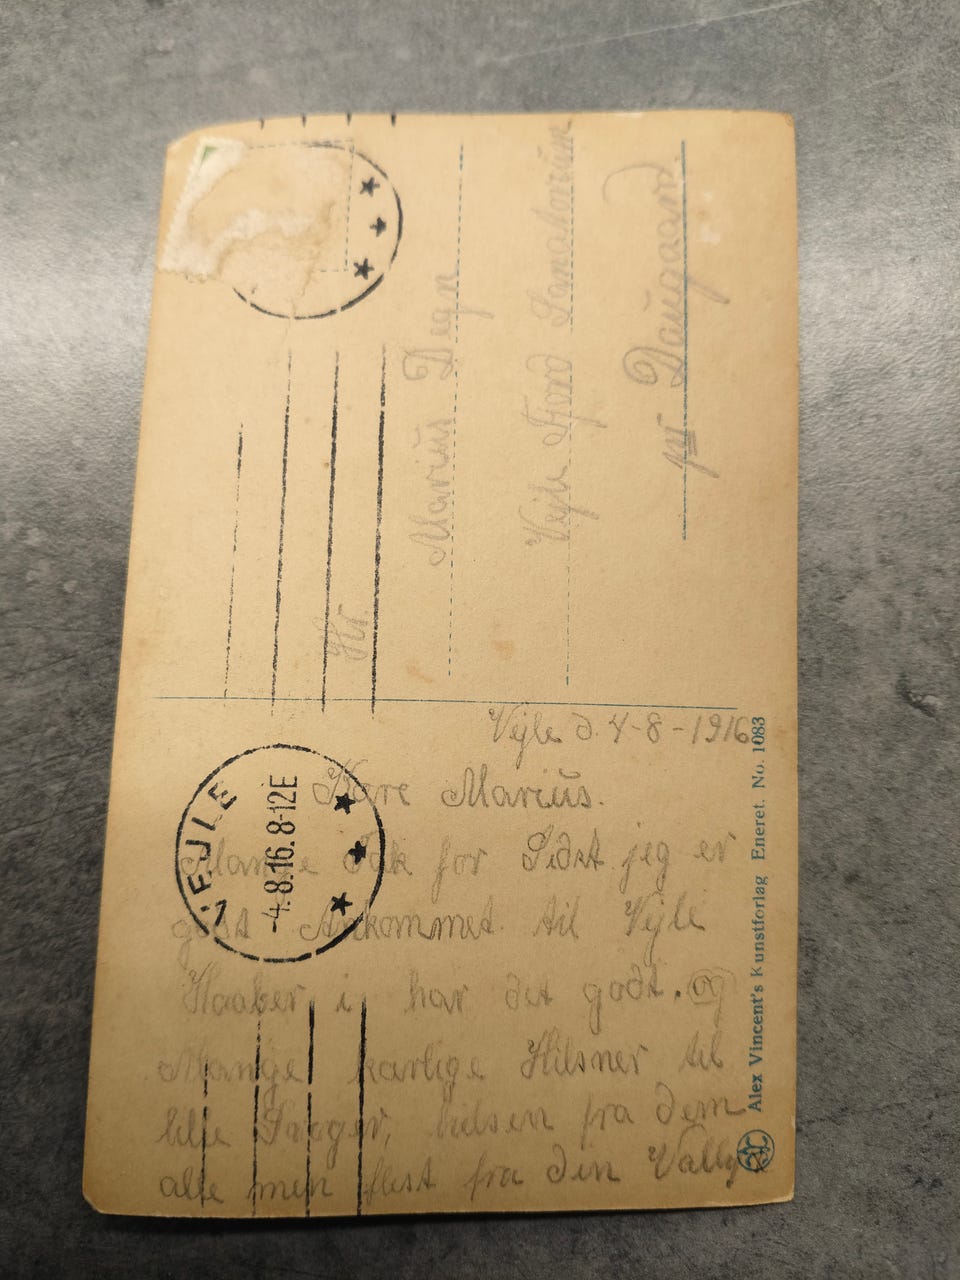 Hr.
Marius Degn
Vejle Fjord Sanatorium
pr Daugaard
VEJLE
-4.8.16.8-12E
Vejle d. 4-8-1916
Kære Marius.
Mange Tak for Sidst jeg er
godt Ankommet til Vejle
Haaber i har det godt. og
Mange kærlige Hilsner til
lille Inger, hilsen fra dem
alle men flest fra din Vally
Alex Vincent's Kunstforlag Eneret. No. 1083